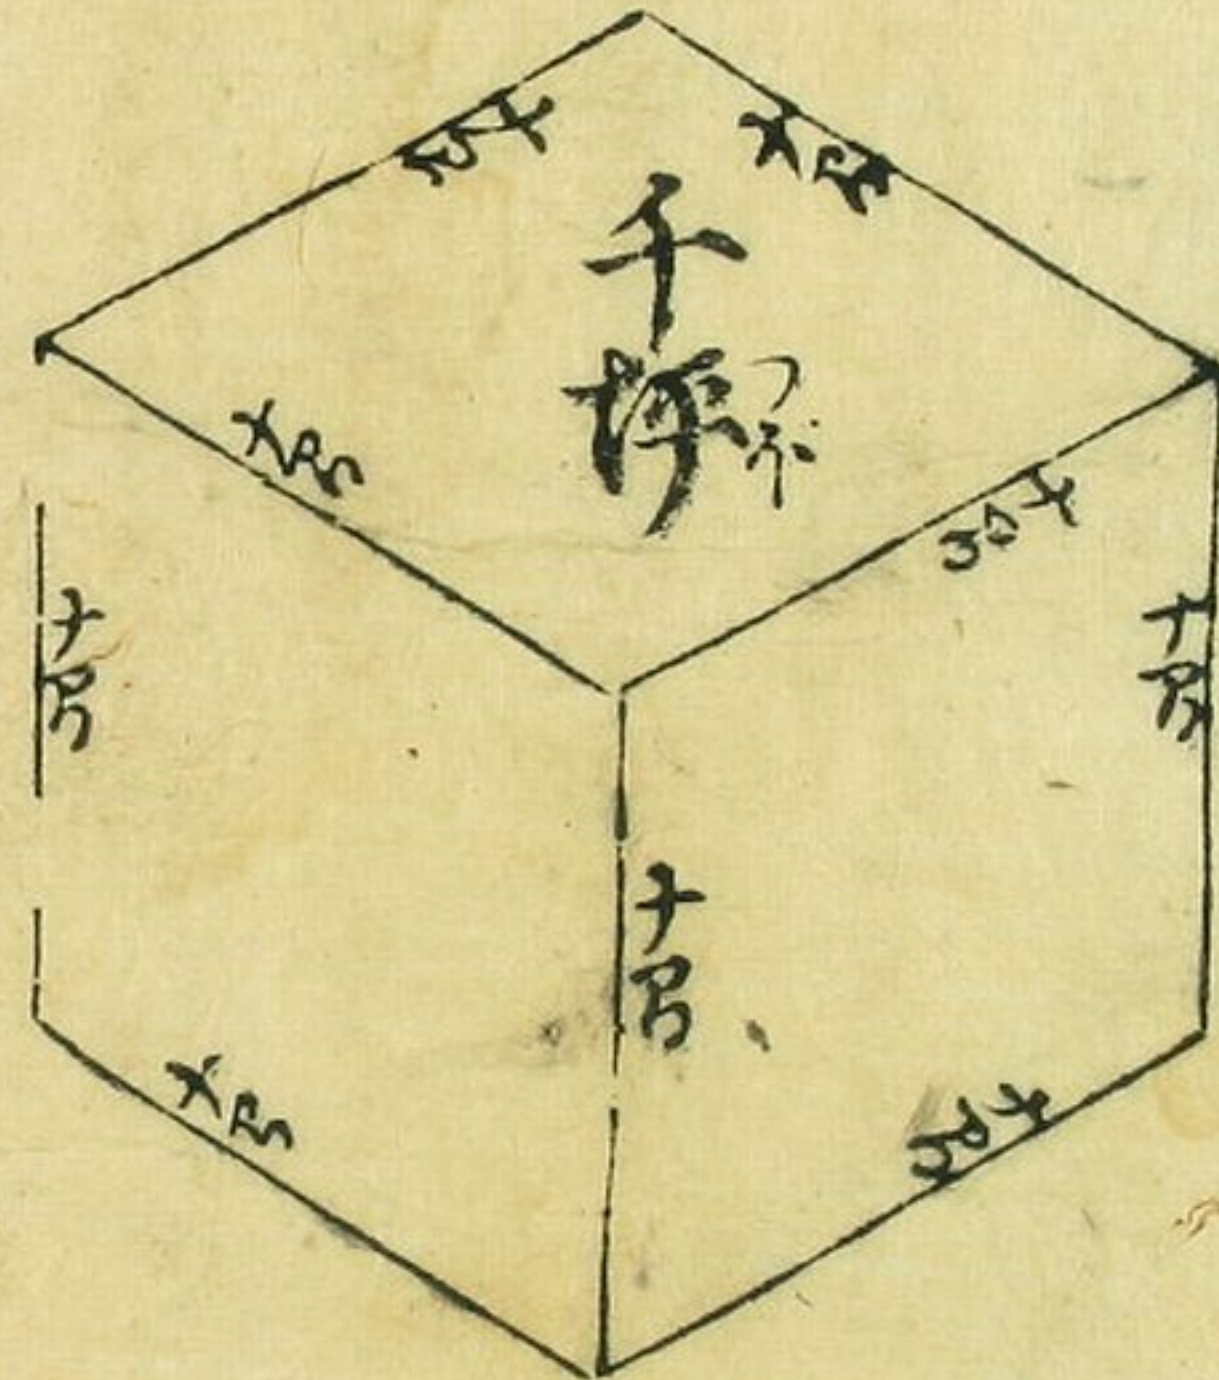 十間
十間
千坪
つぼ
十間
十間
十間
十間
十間
十間
十間